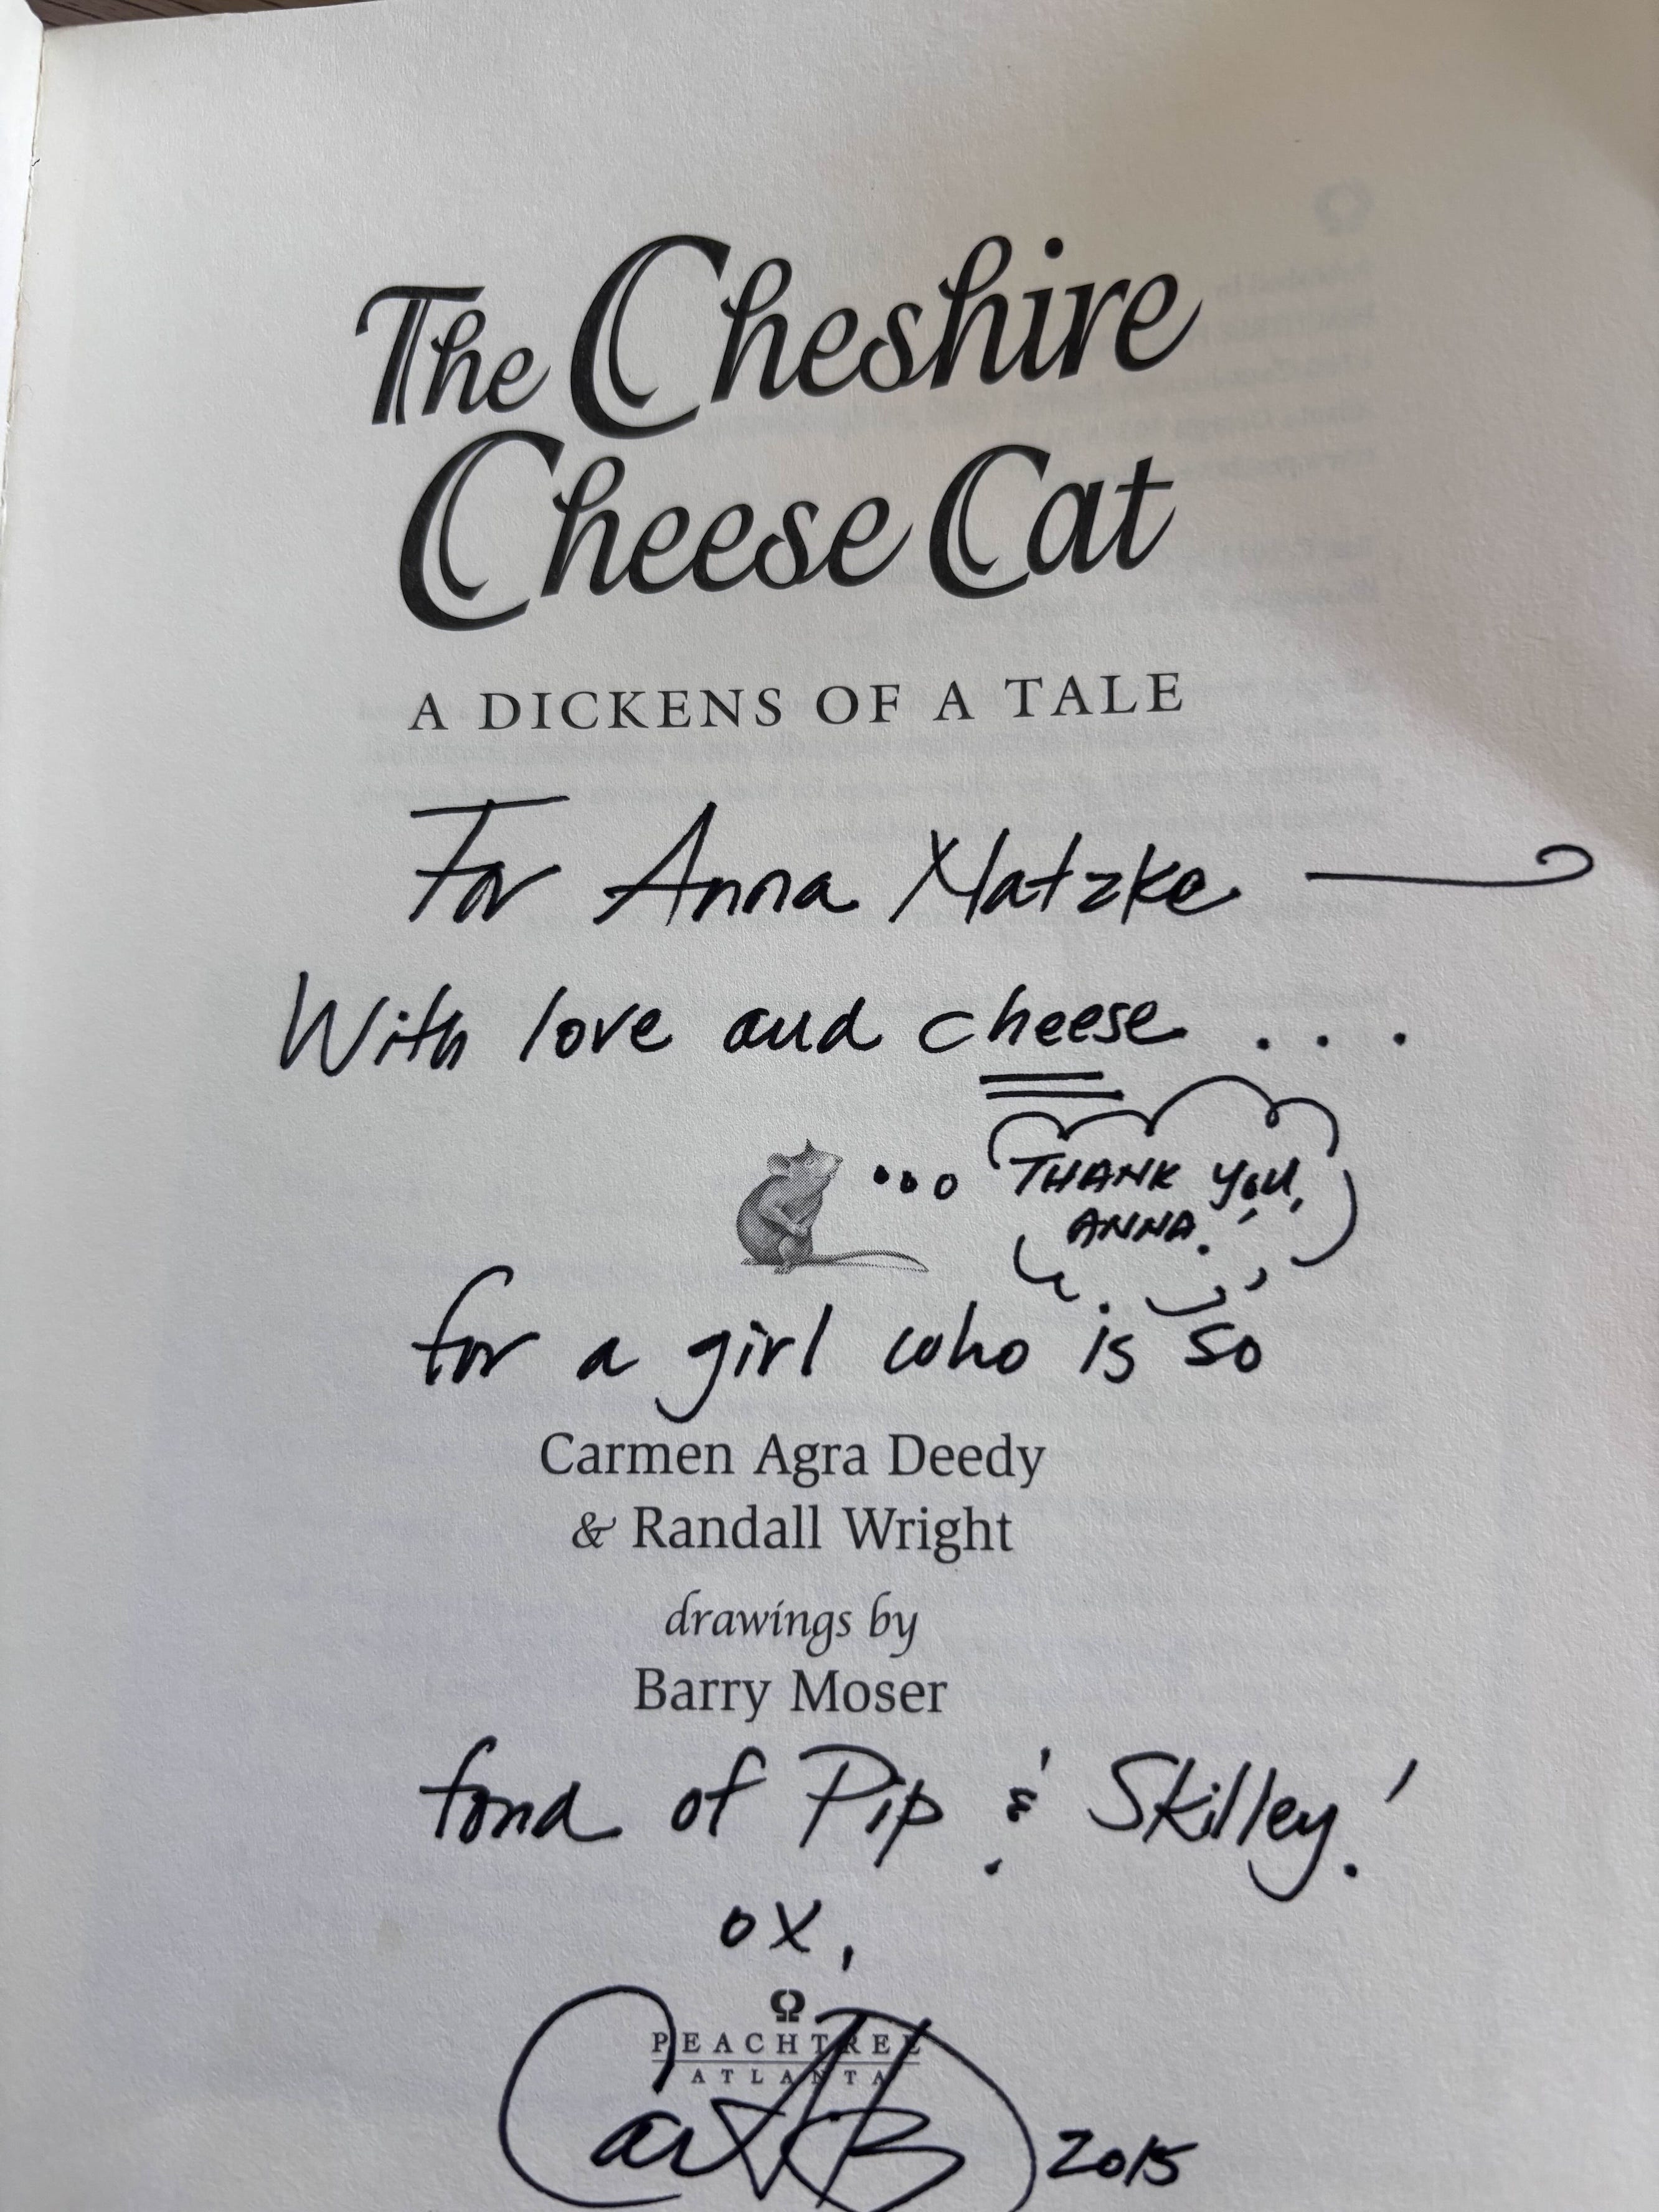 The Cheshire
Cheese Cat
A DICKENS OF A TALE
For Anna Matzke
With love and cheese ....
THANK YOU,
ANNA!
for a girl who is so
Carmen Agra Deedy
& Randall Wright
drawings by
Barry Moser
fond of Pip & Skilley!
OX,
PEACHTREE
ATLANTA
2015